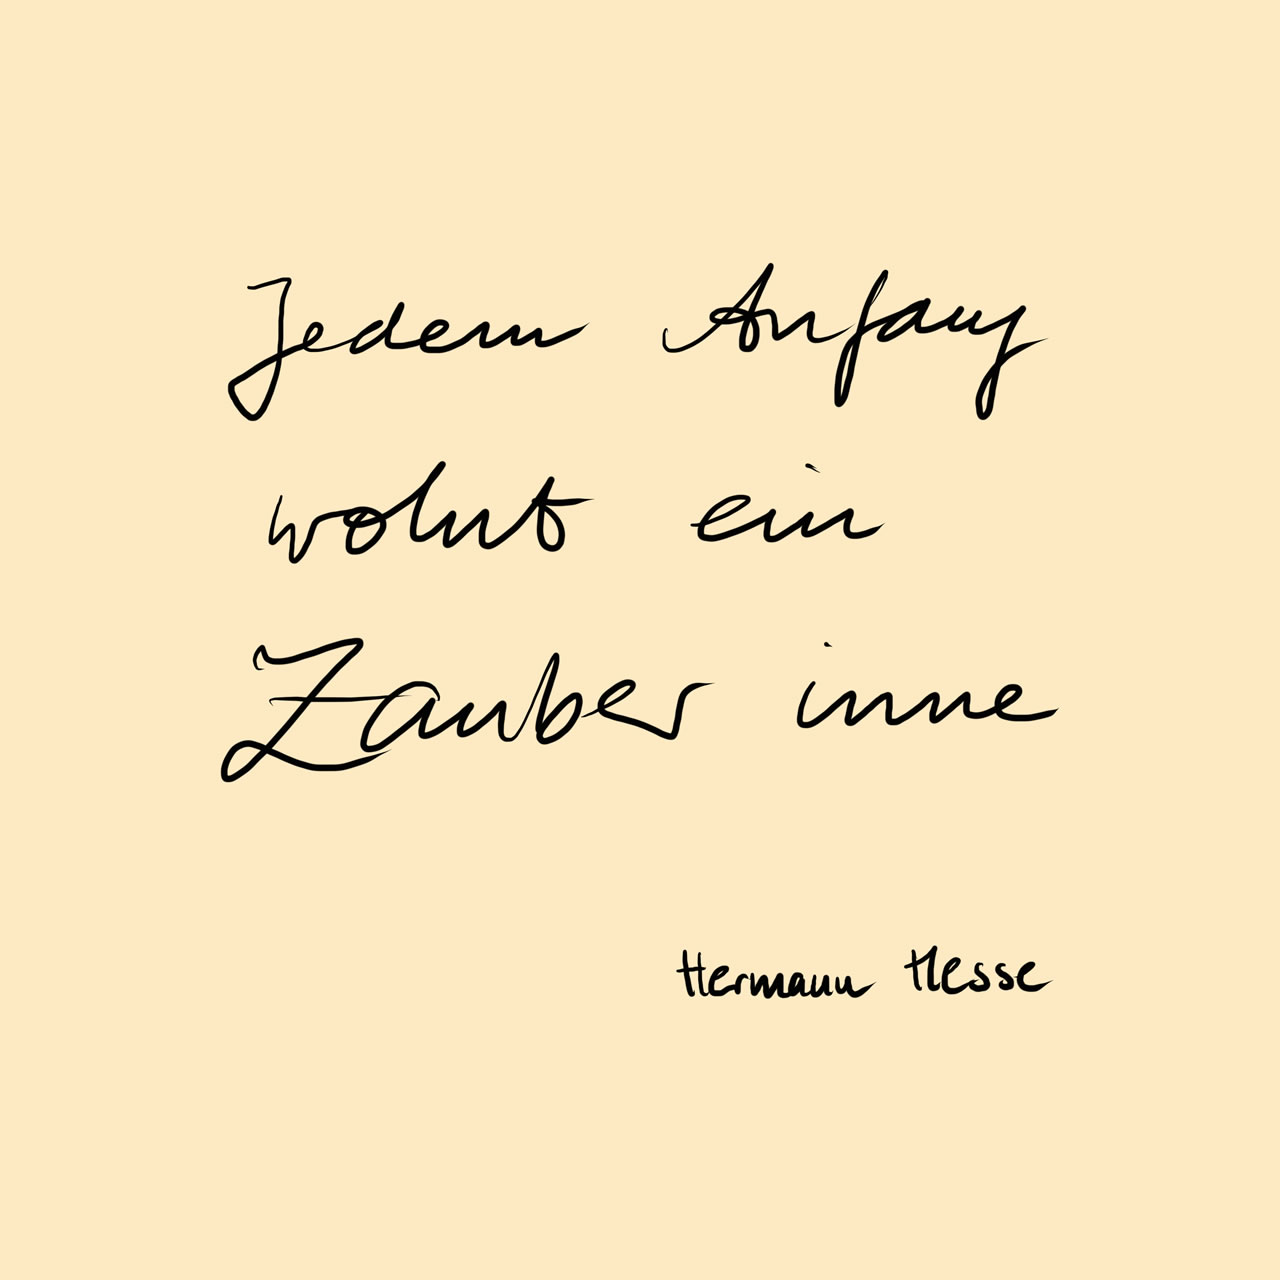 Jedem Anfang
wohnt ein
Zauber inne
Hermann Hesse